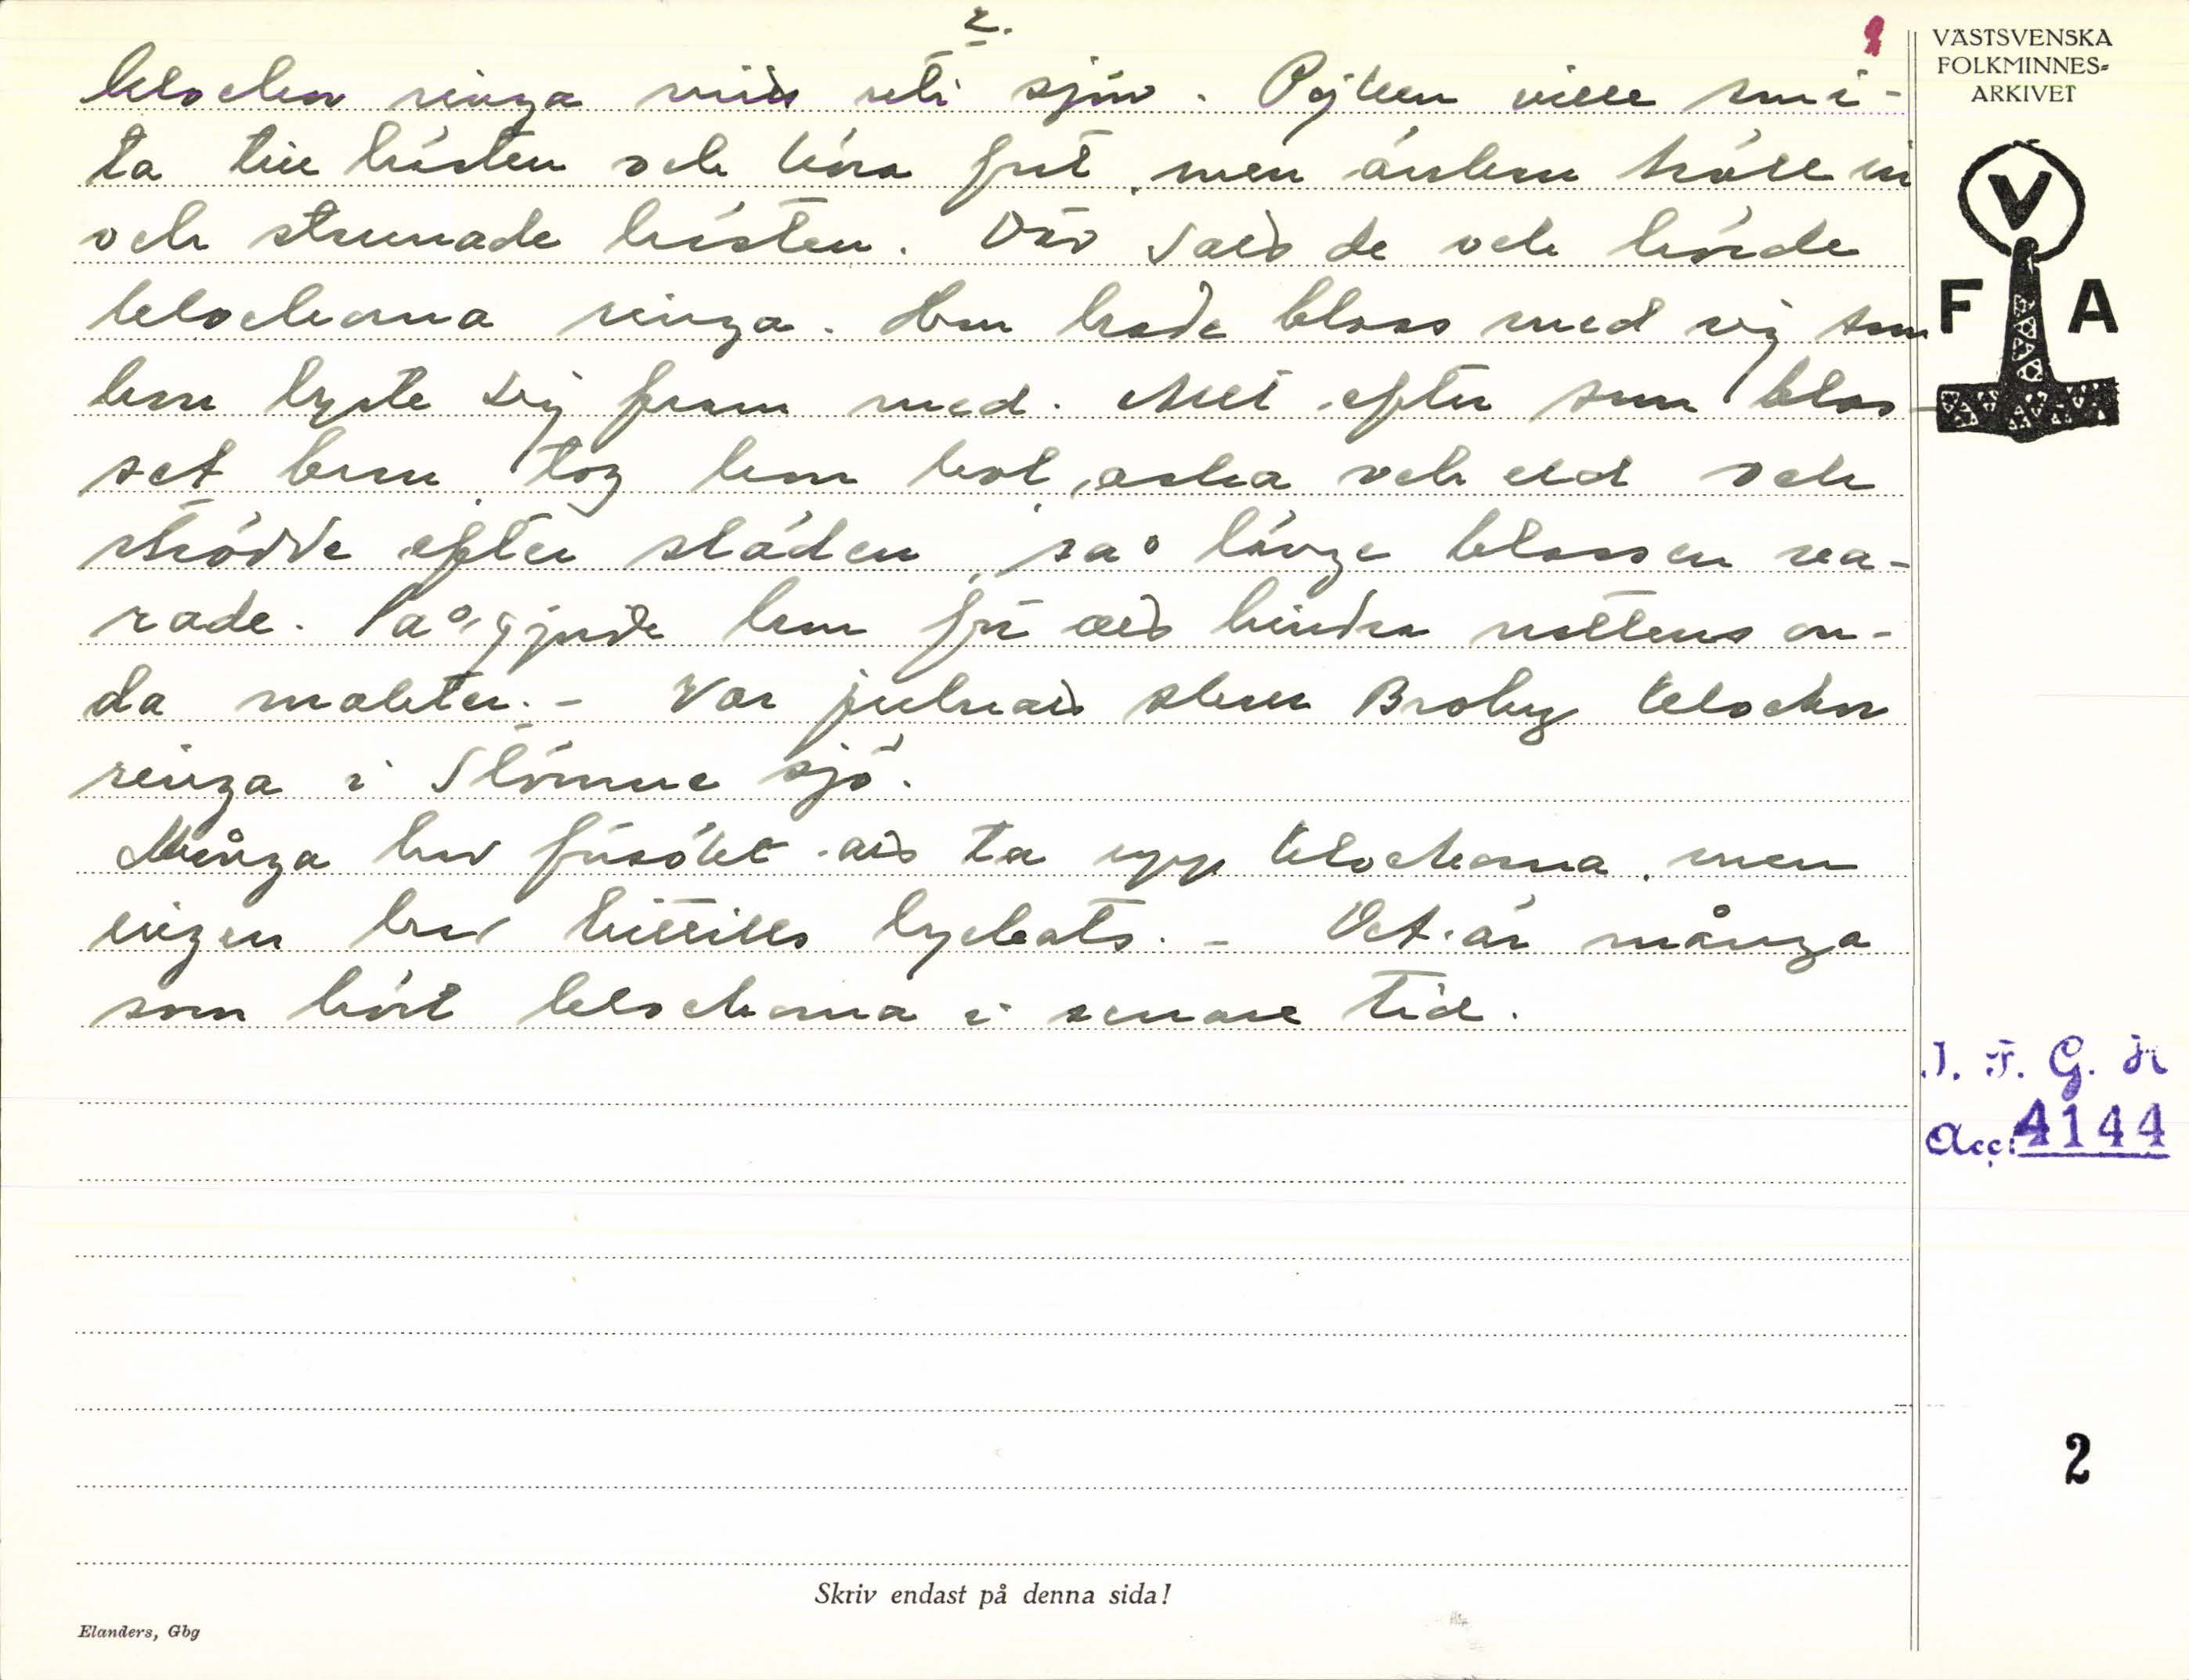 2.
klockor ringa mitt uti sjön. Pojken ville smi-
ta till hästen och köra fort, men änkan höll in
och stannade hästen. Där satt de och hörde
klockorna ringa. Hon hade bloss med sig som
hon lyste sig fram med. Allt efter som blos-
set brann, tog hon kol, aska och eld och
strödde efter släden, så länge blossen va-
rade. Så gjorde hon för att hindra nattens on-
da makter. - Var julnatt skall Broby klockor
ringa i Stömne sjö.
Många har försökt att ta upp klockorna, men
ingen har hittills lyckats. - Det är många
som hört klockorna i senare tid.
VÄSTSVENSKA
FOLKMINNES=
ARKIVET
V
F A
I. F. G. H
Acc: 4144
2
Skriv endast på denna sida!
Elanders, Gbg